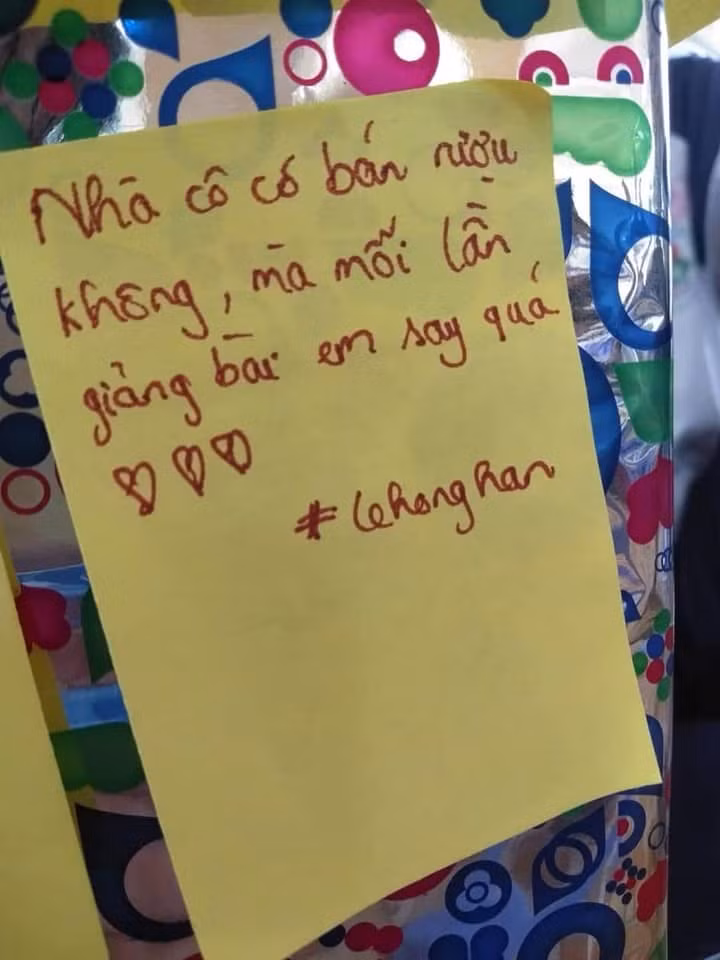 Nhà cô có bán rượu
không, mà mỗi lần
giảng bài em say quá
♡♡♡
#lehonghan